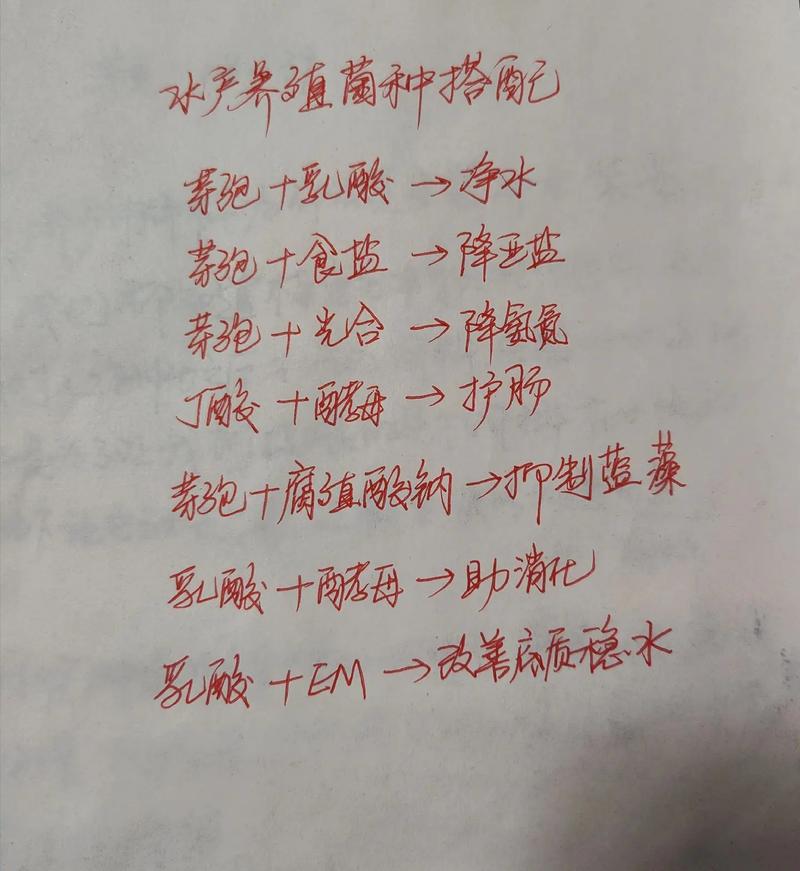 水产养殖菌种搭配
芽孢+乳酸→净水
芽孢+食盐→降亚盐
芽孢+光合→降氨氮
丁酸+酵母→护肠
芽孢+腐殖酸钠→抑制蓝藻
乳酸+酵母→助消化
乳酸+EM→改善底质稳水